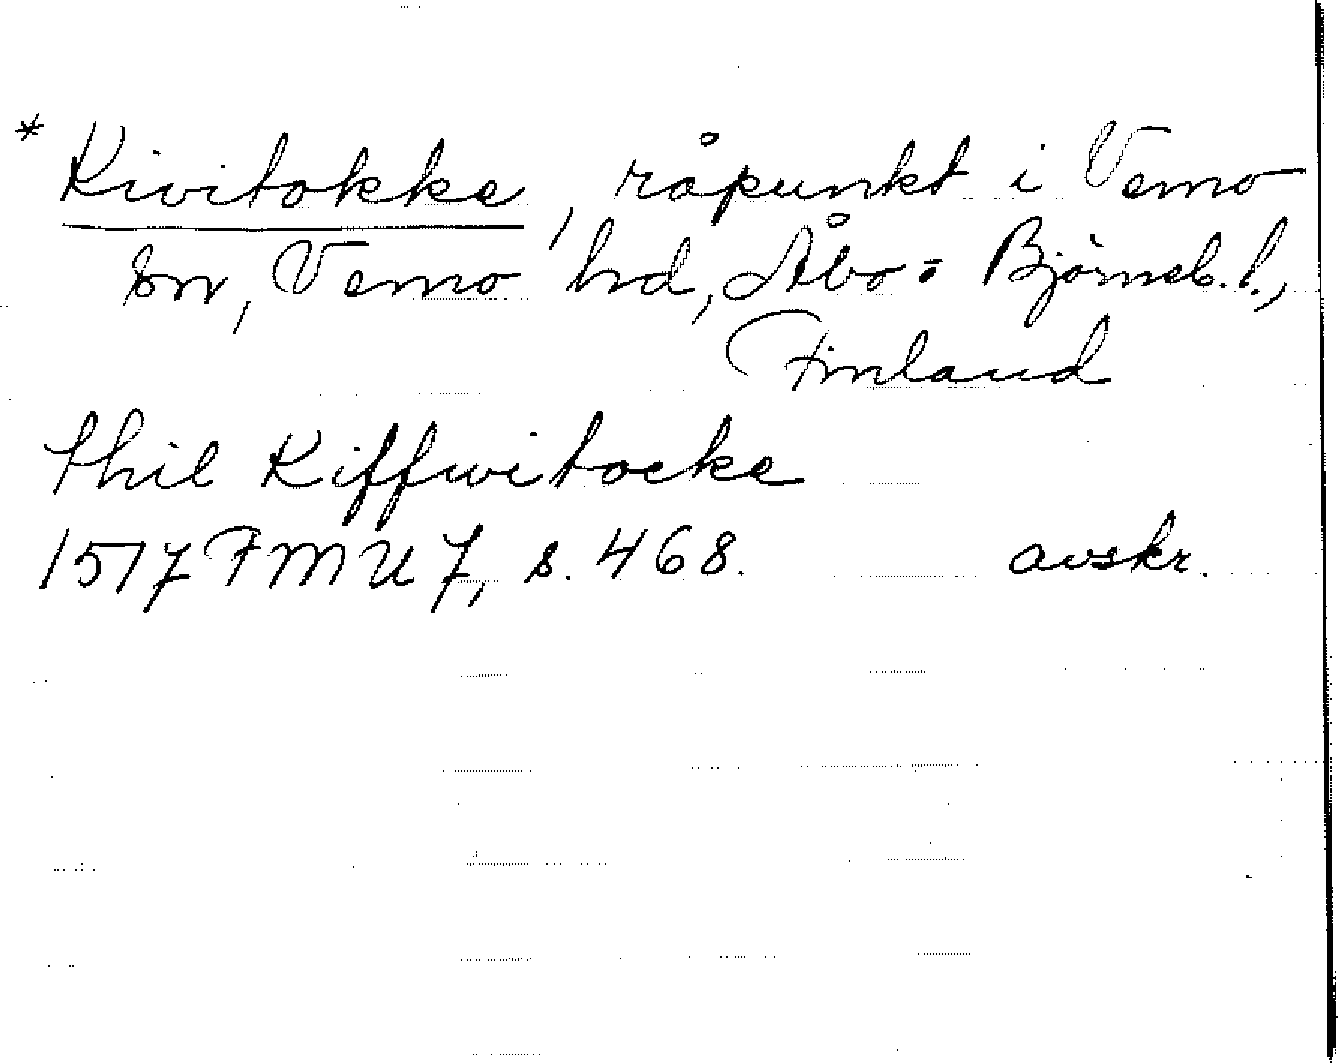 * Kivitokke, råpunkt i Vemo
sn, Vemo hd, Åbo- Björneb. l.,
Finland
thil Kiffwitocke
1517 FMU 7, s. 468. avskr.